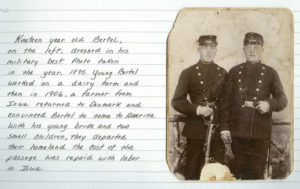 Nineteen year old Bertel,
on the left, dressed in his
military best. Photo taken
in the year, 1895. Young Bertel
worked on a dairy farm and
then in 1906, a farmer from
Iowa returned to Denmark and
convinced Bertel to come to America
With his young bride and two
small children, they departed
their homeland. The cost of the
passage was repaid with labor
in Iowa.